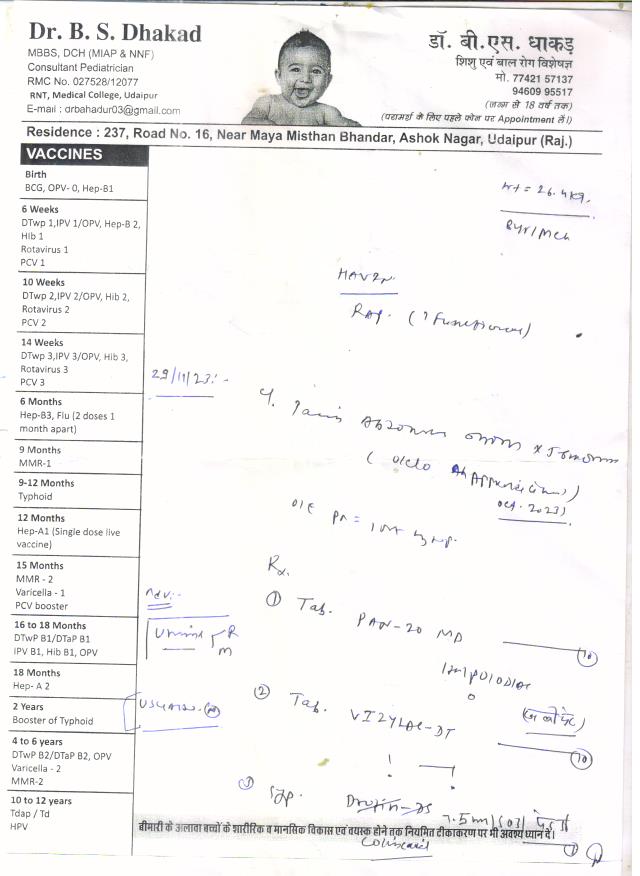 Dr. B. S. Dhakad
MBBS, DCH (MIAP & NNF)
Consultant Pediatrician
RMC No. 027528/12077
RNT, Medical College, Udaipur
E-mail : drbahadur03@gmail.com
डॉ. बी.एस. धाकड़
शिशु एवं बाल रोग विशेषज्ञ
मो. 77421 57137
94609 95517
(जन्म से 18 वर्ष तक)
(परामर्श के लिए पहले फोन पर Appointment लें।)
Residence : 237, Road No. 16, Near Maya Misthan Bhandar, Ashok Nagar, Udaipur (Raj.)
VACCINES
Birth
BCG, OPV- 0, Hep-B1
6 Weeks
DTwp 1,IPV 1/OPV, Hep-B 2,
Hib 1
Rotavirus 1
PCV 1
10 Weeks
DTwp 2,IPV 2/OPV, Hib 2,
Rotavirus 2
PCV 2
14 Weeks
DTwp 3,IPV 3/OPV, Hib 3,
Rotavirus 3
PCV 3
6 Months
Hep-B3, Flu (2 doses 1
month apart)
9 Months
MMR-1
9-12 Months
Typhoid
12 Months
Hep-A1 (Single dose live
vaccine)
15 Months
MMR - 2
Varicella - 1
PCV booster
16 to 18 Months
DTwP B1/DTaP B1
IPV B1, Hib B1, OPV
18 Months
Hep- A 2
2 Years
Booster of Typhoid
4 to 6 years
DTwP B2/DTaP B2, OPV
Varicella - 2
MMR-2
10 to 12 years
Tdap / Td
HPV
wt = 26.4 kg.
8yr/Mch
RAP. (? Functional)
29/11/23:-
(
Oct. 2023)
O/E
Rx.
Adv:-
Urine R
M
① Tab. PAN-20 MD
10
② Tab. VIZYLAC-DT
10
③ Syp.
7.5 ml SOS
बीमारी के अलावा बच्चों के शारीरिक व मानसिक विकास एवं वयस्क होने तक नियमित टीकाकरण पर भी अवश्य ध्यान दें।